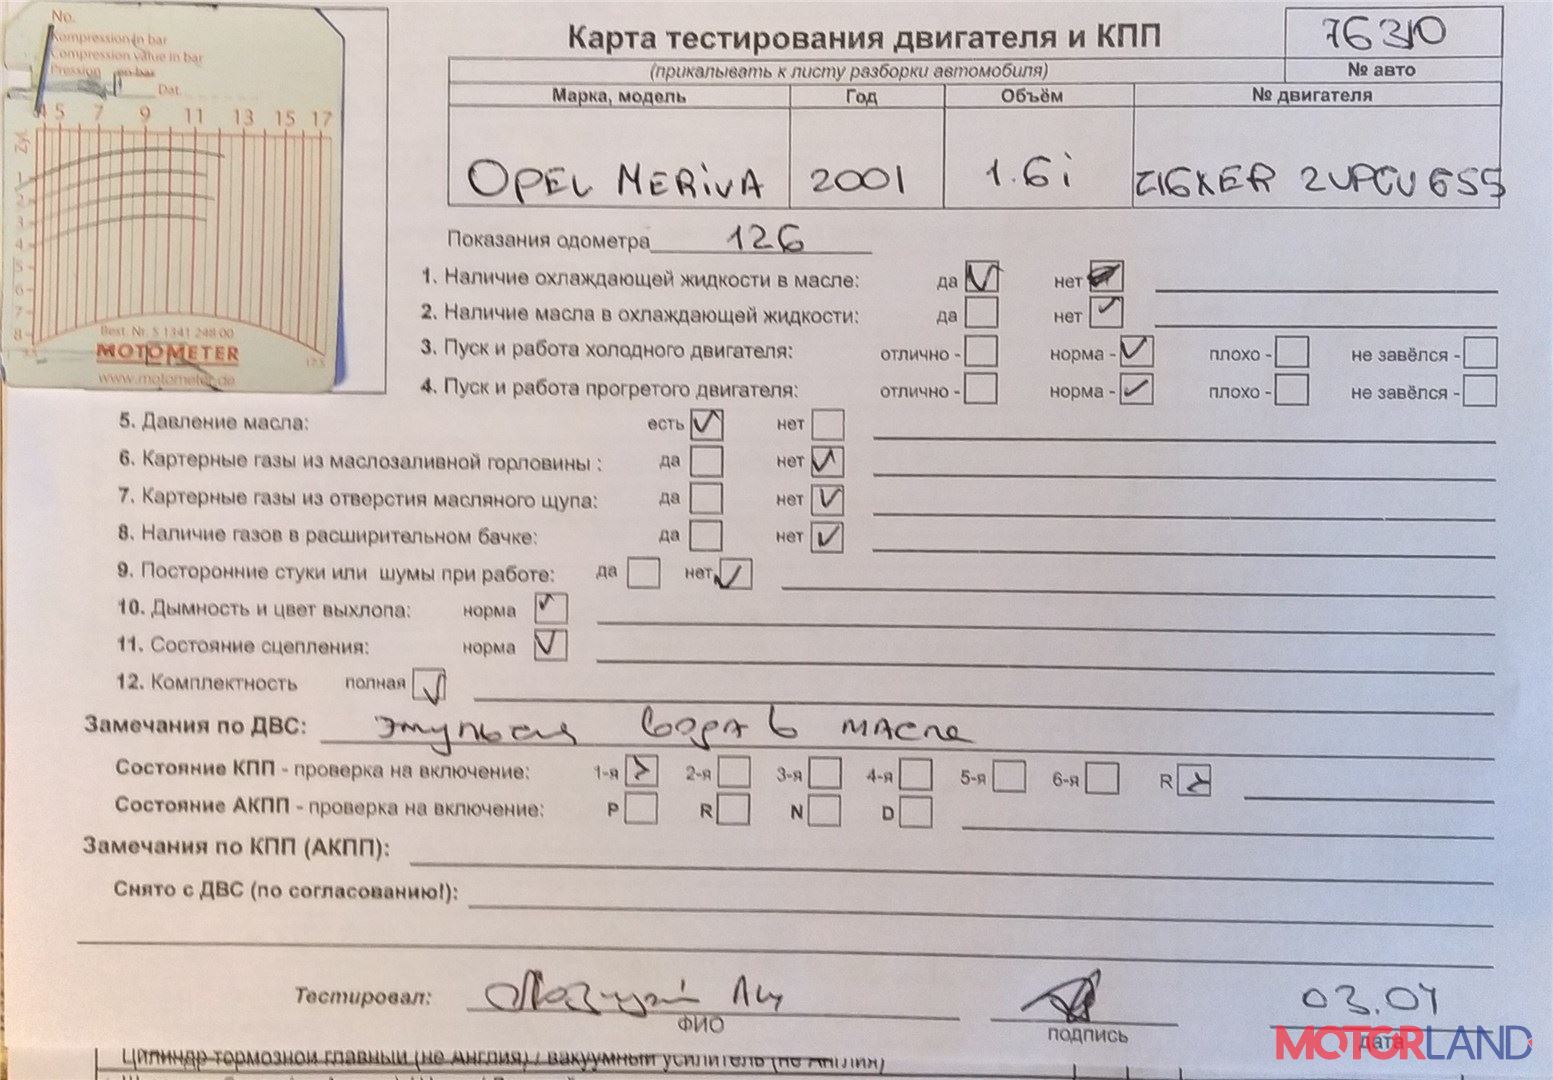 No.
Kompression in bar
Compression value in bar
Pression en bar
Dat.
4 5 7 9 11 13 15 17
Zyl.
1
2
3
4
5
6
7
8
Best. Nr. S 1341 248 00
MOTOMETER
www.motometer.de
17.5
Карта тестирования двигателя и КПП
76310
(прикалывать к листу разборки автомобиля)
№ авто
Марка, модель Год Объём № двигателя
OPEL MERIVA 2001 1.6i
Показания одометра 126
1. Наличие охлаждающей жидкости в масле: да нет
2. Наличие масла в охлаждающей жидкости: да нет
3. Пуск и работа холодного двигателя: отлично - норма - плохо - не завёлся -
4. Пуск и работа прогретого двигателя: отлично - норма - плохо - не завёлся -
5. Давление масла: есть нет
6. Картерные газы из маслозаливной горловины : да нет
7. Картерные газы из отверстия масляного щупа: да нет
8. Наличие газов в расширительном бачке: да нет
9. Посторонние стуки или шумы при работе: да нет
10. Дымность и цвет выхлопа: норма
11. Состояние сцепления: норма
12. Комплектность полная
Замечания по ДВС: эмульсия вода в масле
Состояние КПП - проверка на включение: 1-я 2-я 3-я 4-я 5-я 6-я R
Состояние АКПП - проверка на включение: P R N D
Замечания по КПП (АКПП):
Снято с ДВС (по согласованию!):
Тестировал: 03.04
ФИО подпись дата
MOTORLAND
Цилиндр тормозной главный (не Англия) / вакуумный усилитель (не Англия)